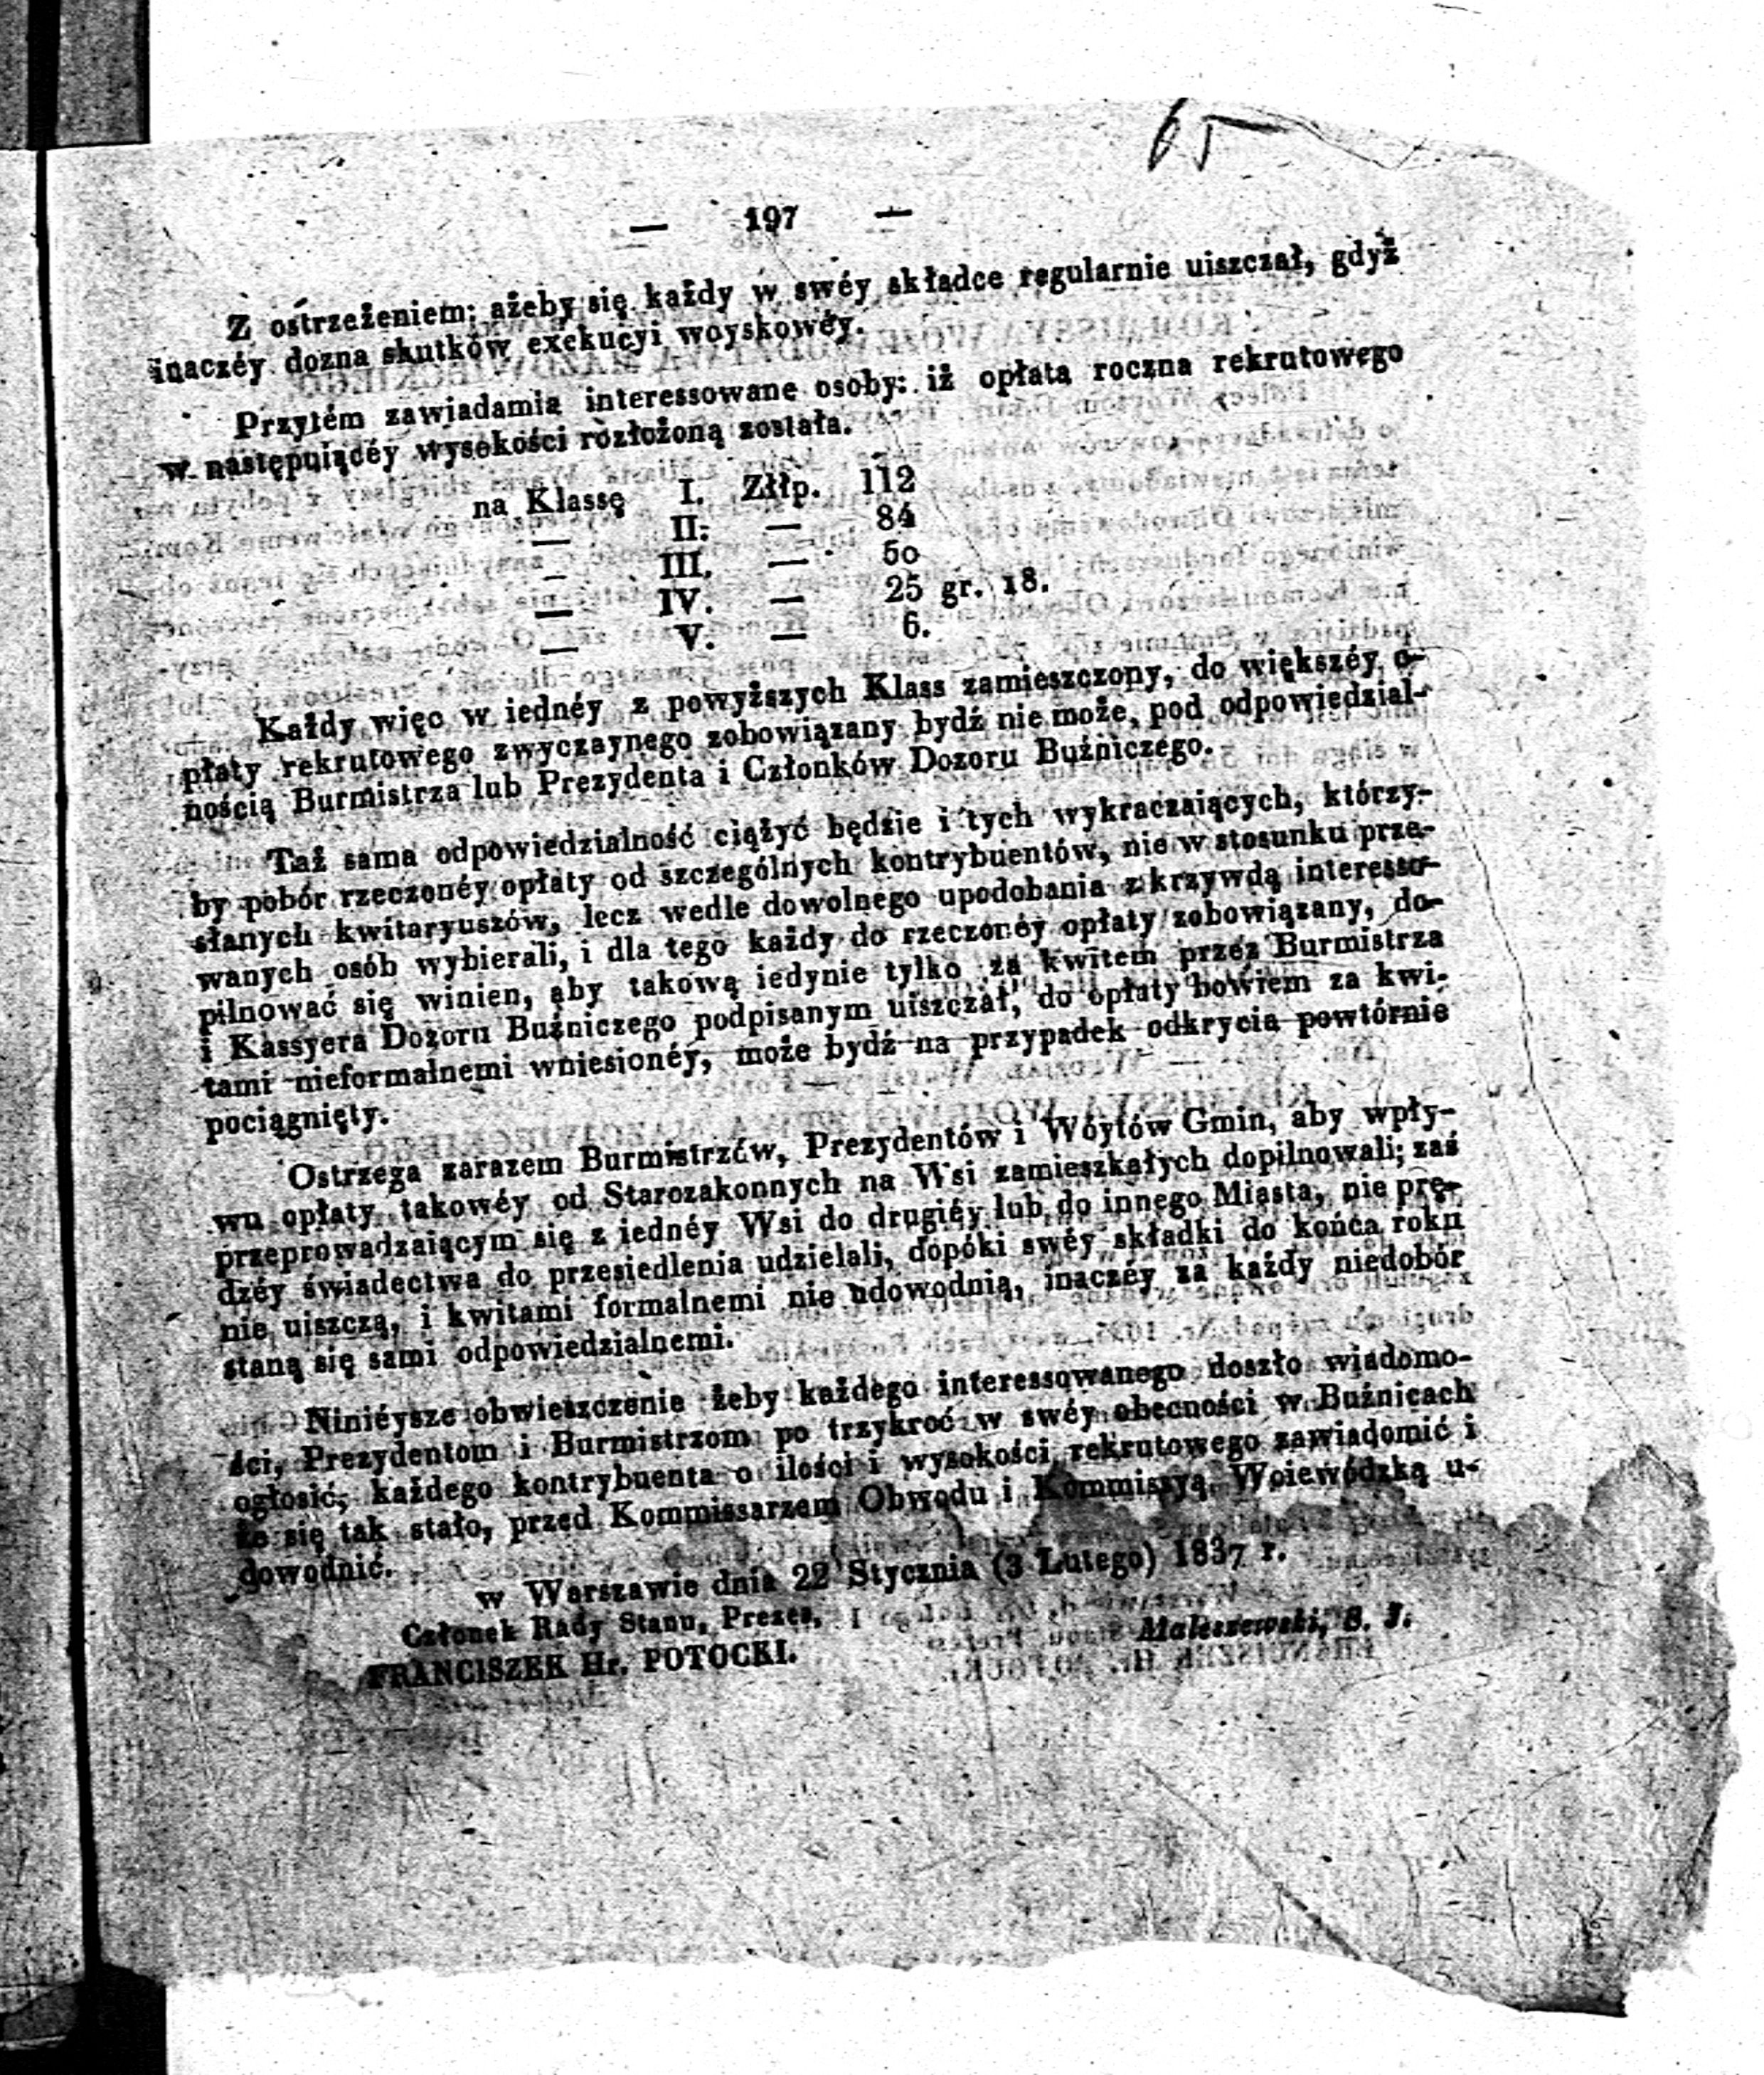 65
— 197 —
Z ostrzeżeniem: ażeby się każdy w swéy składce regularnie uiszczał, gdyż
inaczéy dozna skutków exekucyi woyskowéy.
Przytém zawiadamia interessowane osoby: iż opłata roczna rekrutowego
w następuiącéy wysokości rozłożoną została.
na Klassę I. Złłp. 112
— II. — 84
— III. — 50
— IV. — 25 gr. 18.
— V. — 6.
Każdy więc w iednéy z powyższych Klass zamieszczony, do większéy o-
płaty rekrutowego zwyczaynego zobowiązany bydź nie może, pod odpowiedzial-
nością Burmistrza lub Prezydenta i Członków Dozoru Bużniczego.
Taż sama odpowiedzialność ciążyć będzie i tych wykraczaiących, którzy-
by pobór rzeczonéy opłaty od szczególnych kontrybuentów, nie w stosunku prze-
słanych kwitaryuszów, lecz wedle dowolnego upodobania z krzywdą interesso-
wanych osób wybierali, i dla tego każdy do rzeczonéy opłaty zobowiązany, do-
pilnować się winien, aby takową iedynie tylko za kwitem przez Burmistrza
i Kassyera Dozoru Bużniczego podpisanym uiszczał, do opłaty bowiem za kwi-
tami nieformalnemi wniesionéy, może bydź na przypadek odkrycia powtórnie
pociągnięty.
Ostrzega zarazem Burmistrzów, Prezydentów i Wóytów Gmin, aby wpły-
wu opłaty takowéy od Starozakonnych na Wsi zamieszkałych dopilnowali; zaś
przeprowadzaiącym się z iednéy Wsi do drugiéy lub do innego Miasta, nie prę-
dzéy świadectwa do przesiedlenia udzielali, dopóki swéy składki do końca roku
nie uiszczą, i kwitami formalnemi nie udowodnią, inaczéy za każdy niedobór
staną się sami odpowiedzialnemi.
Niniéysze obwieszczenie żeby każdego interessowanego doszło wiadomo-
ści, Prezydentom i Burmistrzom po trzykroć w swéy obecności w Bużnicach
ogłosić, każdego kontrybuenta o ilości i wysokości rekrutowego zawiadomić i
że się tak stało, przed Kommissarzem Obwodu i Kommissyą Woiewódzką u-
dowodnić.
w Warszawie dnia 22 Stycznia (3 Lutego) 1837 r.
Członek Rady Stanu, Prezes,
FRANCISZEK Hr. POTOCKI.
Maleszewski, S. J.